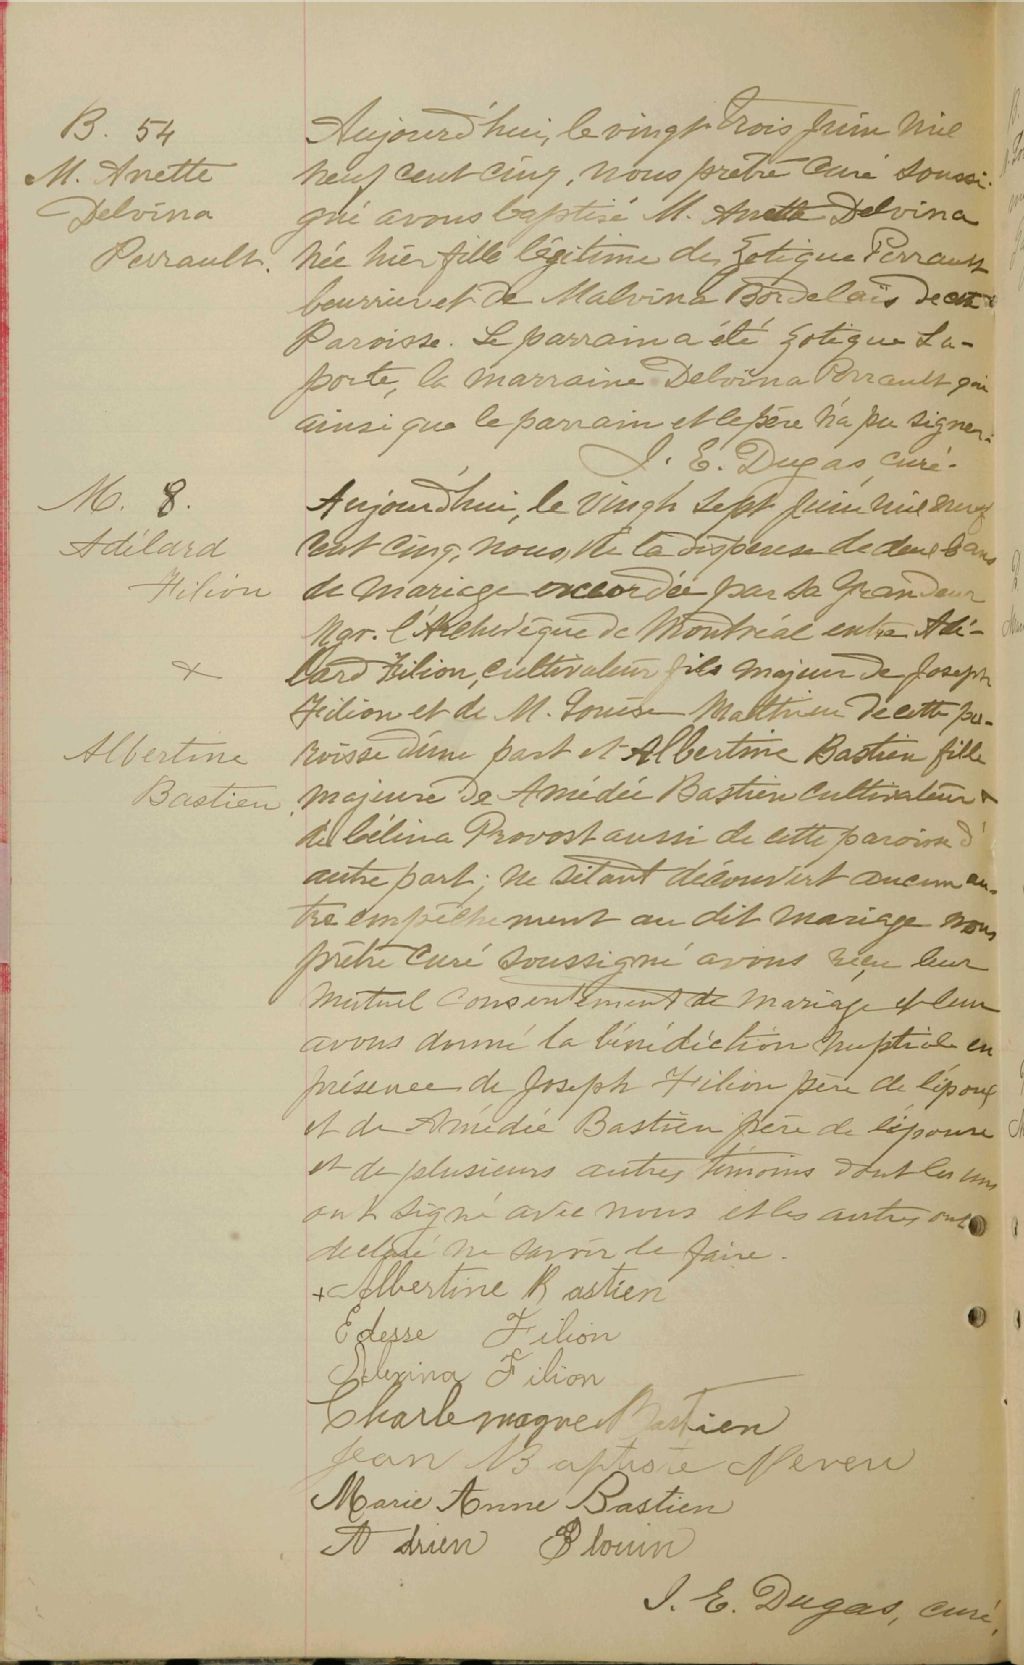 B. 54
M. Anette
Delvina
Perrault.
Aujourd'hui, le vingt-trois Juin mil
neuf cent cinq, nous prêtre curé soussi-
gné avons baptisé M. Anette Delvina
née hier fille légitime de Zotique Perrault
beurrier et de Malvina Bordelais de cette
Paroisse. Le parrain a été Zotique La-
porte, la marraine Delvina Perrault qui
ainsi que le parrain et le père n'a pu signer.
J. E. Dugas, curé.
M. 8.
Adélard
Filion
+
Albertine
Bastien
Aujourd'hui, le vingt sept Juin mil neuf
cent cinq, nous, vu la dispense de deux bans
de mariage accordée par sa Grandeur
Mgr. l'Archevêque de Montréal entre Adé-
lard Filion, cultivateur fils majeur de Joseph
Filion et de M. Louise Matthieu de cette pa-
roisse d'une part et Albertine Bastien fille
majeure de Amédée Bastien cultivateur &
de Célina Provost aussi de cette paroisse d'
autre part; ne s'étant découvert aucun au-
tre empêchement au dit mariage nous
prêtre curé soussigné avons reçu leur
mutuel consentement de mariage et leur
avons donné la bénédiction nuptiale en
présence de Joseph Filion père de l'époux
et de Amédée Bastien père de l'épouse
et de plusieurs autres témoins dont les uns
ont signé avec nous et les autres ont
déclaré ne savoir le faire.
+ Albertine Bastien
Edesse Filion
Filion
Charlemagne Bastien
Jean Baptiste Neveu
Marie Anne Bastien
Adrien Blouin
J. E. Dugas, curé,